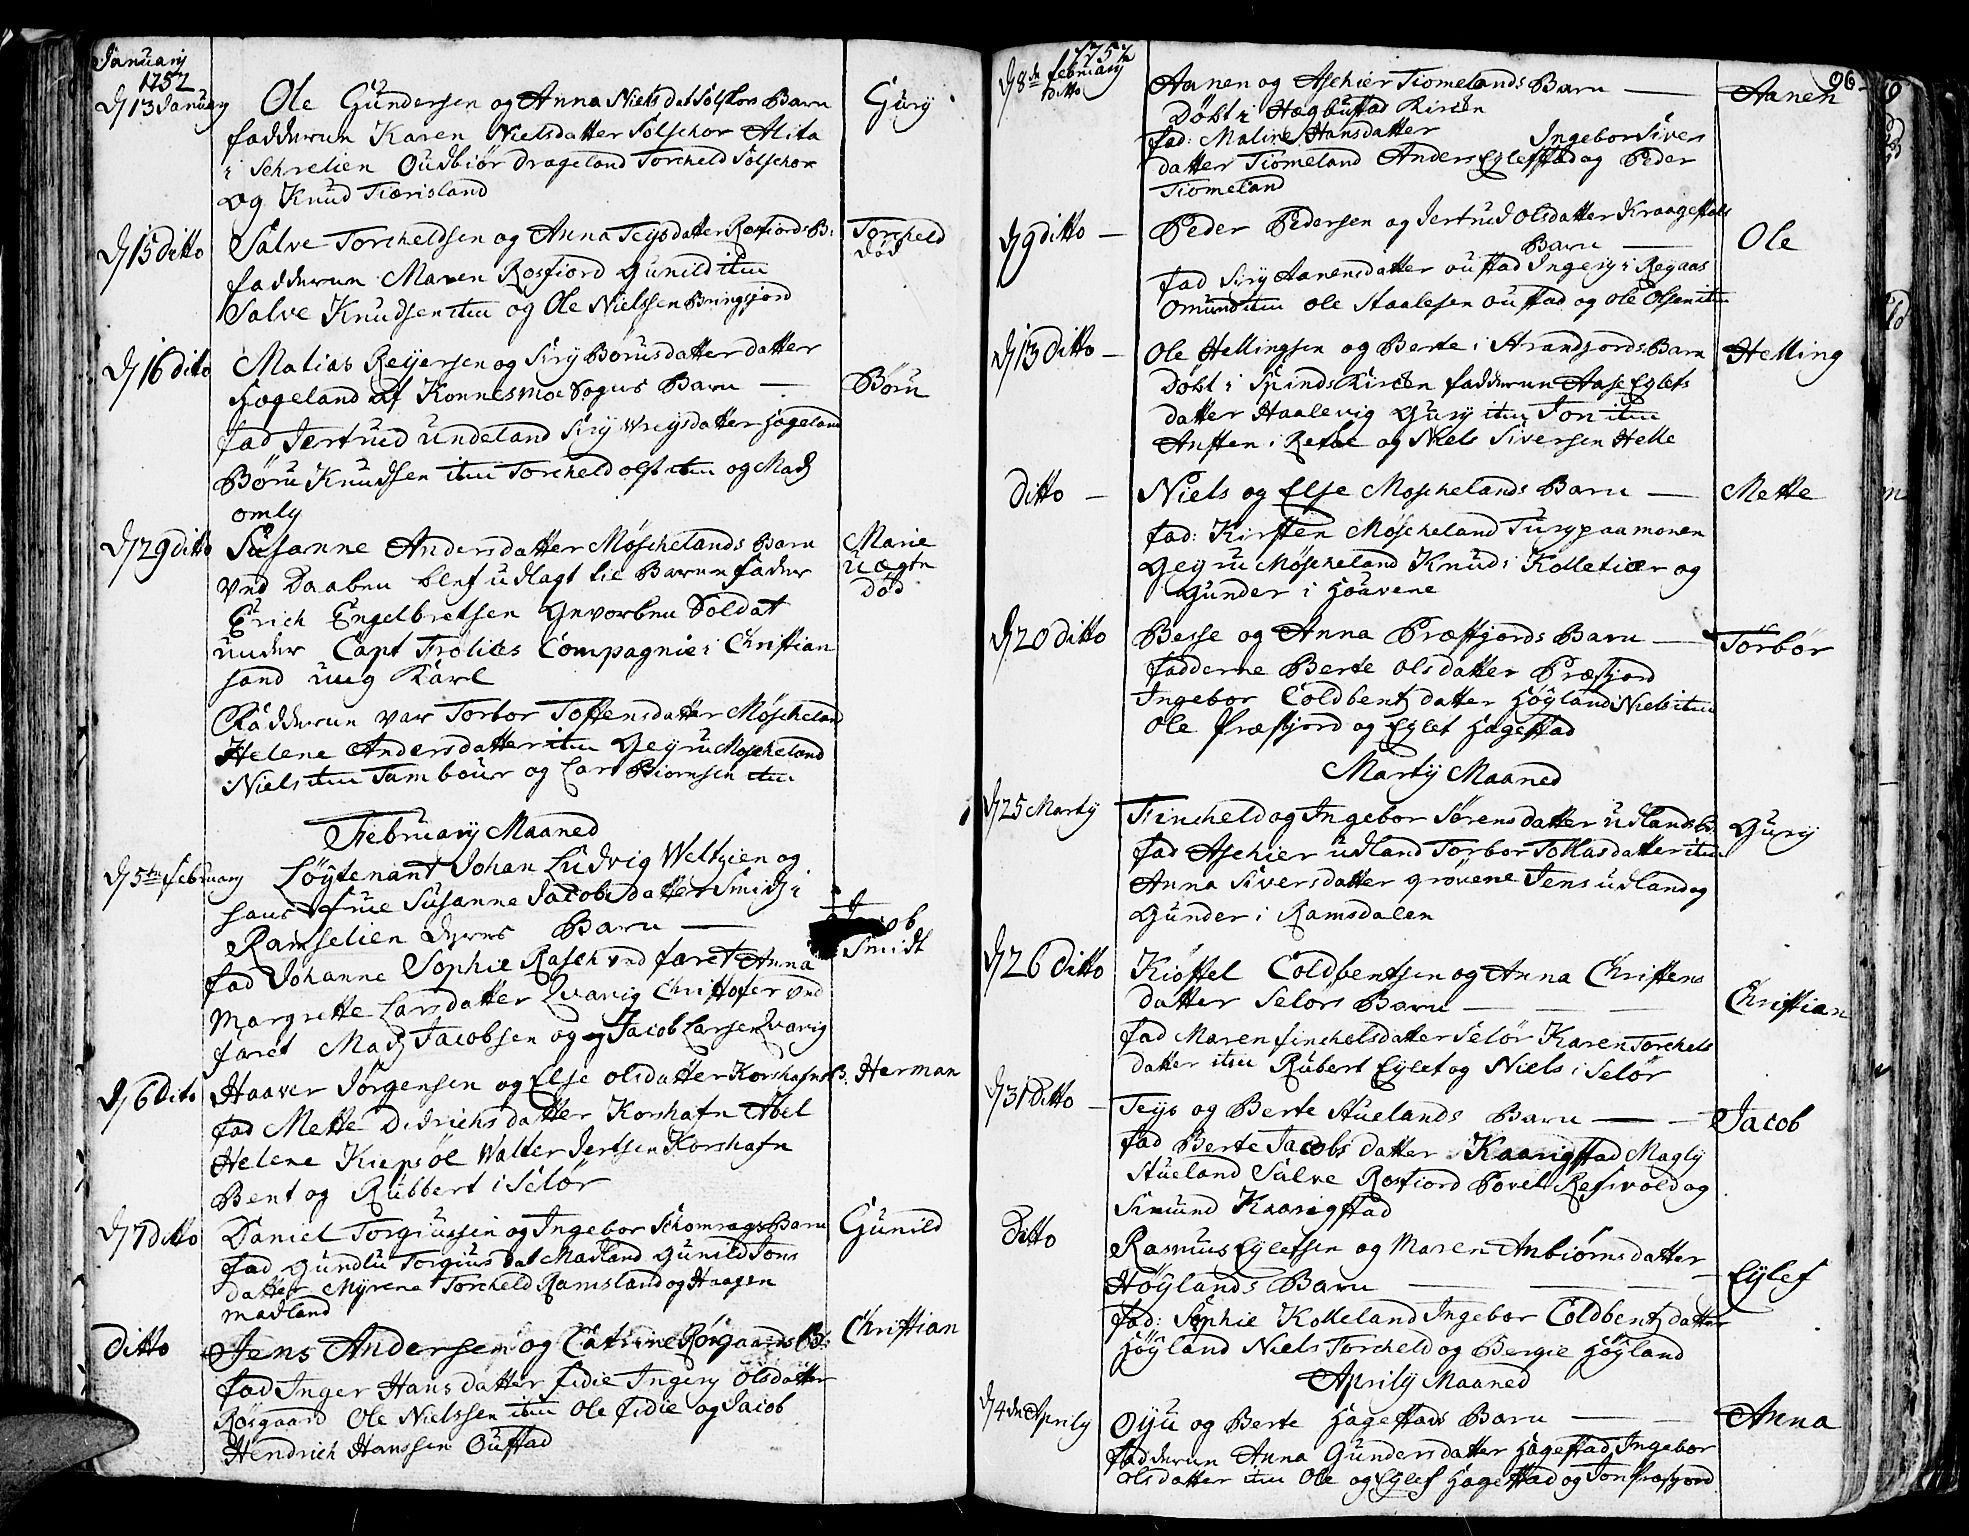 January
1757
D 13 January Ole Gundersen og Anna Niels dat Sølschors Barn Gury
fadderne Karen Nielsdatter Sølschor Alita
i Schrelien Oudbiør Drageland Torcheld Sølschor
og Knud Tiærisland
D 15 ditto Salve Torcheldsen og Anna Teysdatter Rosfiords B: Torcheld
død
fadderne Maren Rosfiord Gunild itm
Salve Knudsen itm og Ole Nielssen Bringsjord
D 16 dito Matias Reyersen og Siry Børusdatter datter
Hægeland af Konnesmoe Sogns Barn — Børu
fad Jertrud Undeland Siry datter Hægeland
Børu Knudsen itm Torcheld ols itm og Mads
omly
D 29 ditto Susanne Andersdatter Møschelands Barn Marie
Uægte
død
ved Daaben blef udlagt til Barne fader
Erich Engelbretsen Gevorben Soldat
under Capt Frolics Compagnie i Christian
sand ung Karl
Fadderne var Torbor Toffensdatter Møscheland
Helene Andersdatter itm Geyru Møscheland
Niels itm Tambour og Lars Biørnsen itm
February Maaned
D 5te february Løytenant Johan Ludvig Weltzien og
hans frue Susanne Jacobsdatter Smidz i
Ramselien deres Barn — Jacob
Smidt
fad Johanne Sophie Rasch ved faret Anna
Margrette Larsdatter Qvavig Christofer ved
faret Mads Jacobsen og Jacob Larsen Qvavig
D 6 Dito Haaver Jørgensen og Else olsdatter Korshafns B: Herman
fad Mette Didrichsdatter Korshafn Abel
Helene Kiepsøe Walter Jertsen Korshafn
Bent og Rubbert i Selør
D 7 Ditto Daniel Torgiussen og Ingebor Schomrags Barn Gunild
fad Gundlu Torgius dat Madland Gunild Jons
datter Myrene Torcheld Ramsland og Haagen
madland
ditto Jens Andersen og Catrine Rosgaards B: Christian
fad Inger Hansdatter fidie Ingery olsdatter
Rosgaard Ole Nielssen itm Ole fidie og Jacob
Hendrich Hanssen Oufstad
1757 96
D 8de february
ditto
Aanen og Aschier Tiomelands Barn — Aanen
Døbt i Hægbustad Kirken
fad: Maline Hansdatter Ingebor Sivers
datter Tiomeland Anders Eglefstad og Peder
Tiomeland
D 9 ditto — Peder Pedersen og Jertrud olsdatter Kraagestøls
Barn — Ole
fad Siry Aanensdatter oufstad Ingery i Reyaas
Omund itm ole Staalesen oufstad og ole Olsen itm
D 13 Ditto — Ole Hellingsen og Berte i Strandjords Barn Helling
Døbt i Spinds Kirken fadderne Aase Eglets
datter Haalevig Gury itm Jon itm
Ansten i Refse og Niels Siversen Helle
ditto — Niels og Else Moschelands Barn — Mette
fad: Kirsten Møscheland Turyp aamonen
Geyru Møscheland Knud i Kolletiær og
Gunder i Høavene
D 20 ditto Besse og Anna Præstfjords Barn — Torbør
fadderne Berte olsdatter Præsfjord
Ingebor Coldbentz datter Høyland Niels itm
Ole Præsfjord og Eglet Hagestad
Marty Maaned
D 25 Marty Fincheld og Ingebor Sørensdatter udlands B: Gury
fad Aschier udland Torbor Tollasdatter itm
Anna Siversdatter Grøvene Jens udland og
Gunder i Ramsdalen
D 26 Ditto Kiøstel Coldbentsen og Anna Christens
datter Selørs Barn — Christian
fad Maren finchelsdatter Selør Karen Torchels
datter itm Rubert Eylet og Niels i Selør
D 31 Ditto — Teys og Berte Stuelands Barn — Jacob
fad Berte Jacobs datter Kaarigstad Magly
Stueland Salve Rosfiord Povel Refsvold og
Simund Kaarigstad
Ditto Rasmus Eyletsen og Maren Anbiørnsdatter
Høylands Barn — Eylef
fad: Sophie Kolleland Ingebor Coldbentz datter
Høyland Niels Torcheld og Bergie Høyland
Aprily Maaned
D 4de Aprily Oyu og Berte Hagestads Barn — Anna
fadderne Anna Gundersdatter Hagestad Ingebor
olsdatter itm Ole og Eylef Hagestad og Jon Præsfjord